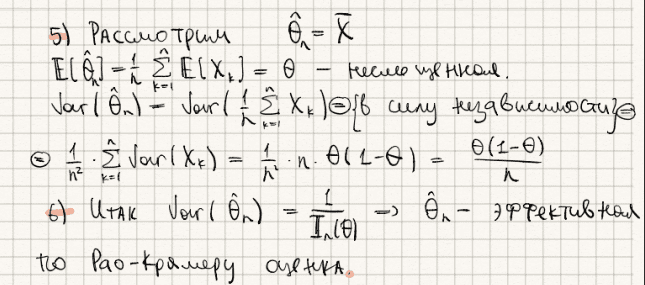 5) Рассмотрим θ̂ₙ = X̄
𝔼[θ̂ₙ] = 1/n ∑ₖ₌₁ⁿ 𝔼[Xₖ] = θ – несмещенная.
Var(θ̂ₙ) = Var(1/n ∑ₖ₌₁ⁿ Xₖ) ⊜ {в силу независимости} ⊜
⊜ 1/n² · ∑ₖ₌₁ⁿ Var(Xₖ) = 1/n² · n · θ(1-θ) = θ(1-θ)/n
6) Итак Var(θ̂ₙ) = 1/Iₙ(θ) → θ̂ₙ – эффективная
по Рао-Крамеру оценка.